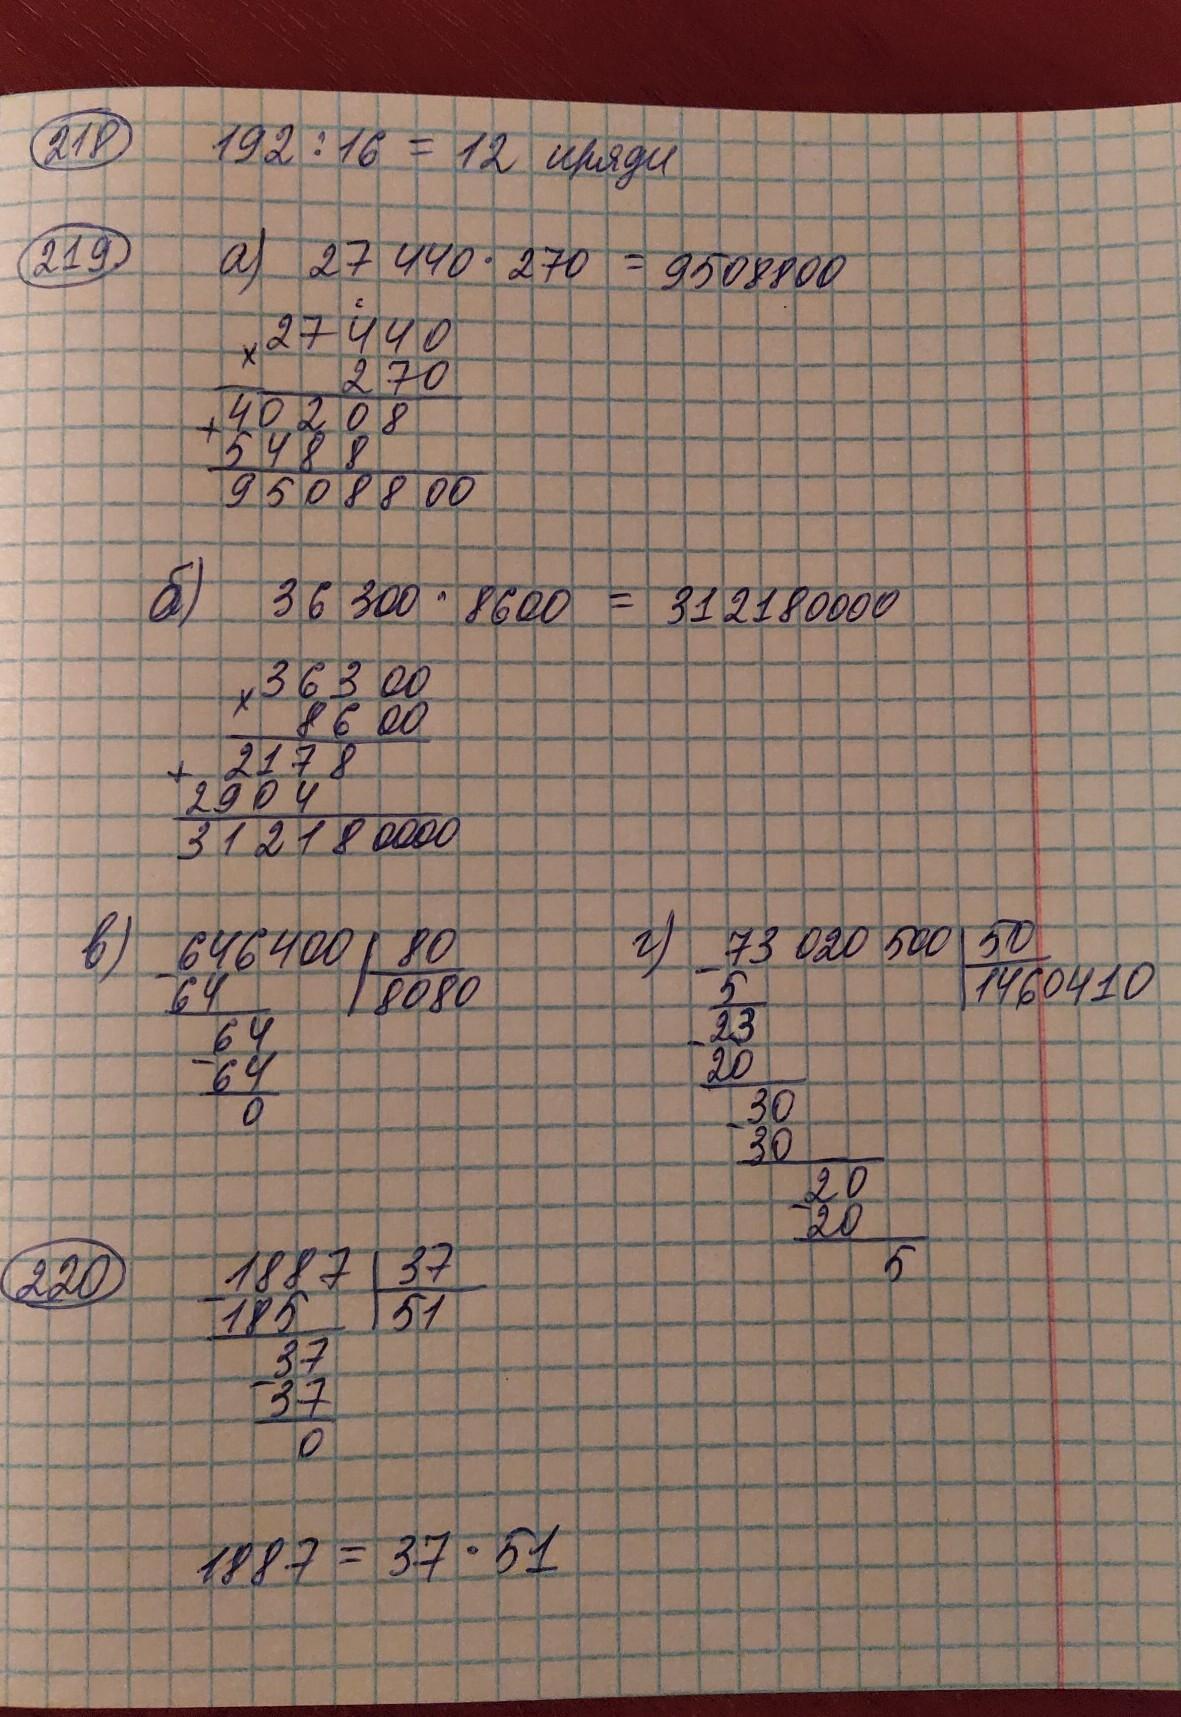 218 192 : 16 = 12 пряди
219 а) 27 440 · 270 = 9508800
× 27440
270
+ 40208
5488
9508800
б) 36 300 · 8600 = 312180000
× 36300
8600
+ 2178
2904
312180000
в) - 646400 | 80
64 | 8080
- 64
64
0
г) - 73 020 500 | 50
5 | 1460410
- 23
20
- 30
30
- 20
20
5
220 - 1887 | 37
185 | 51
- 37
37
0
1887 = 37 · 51